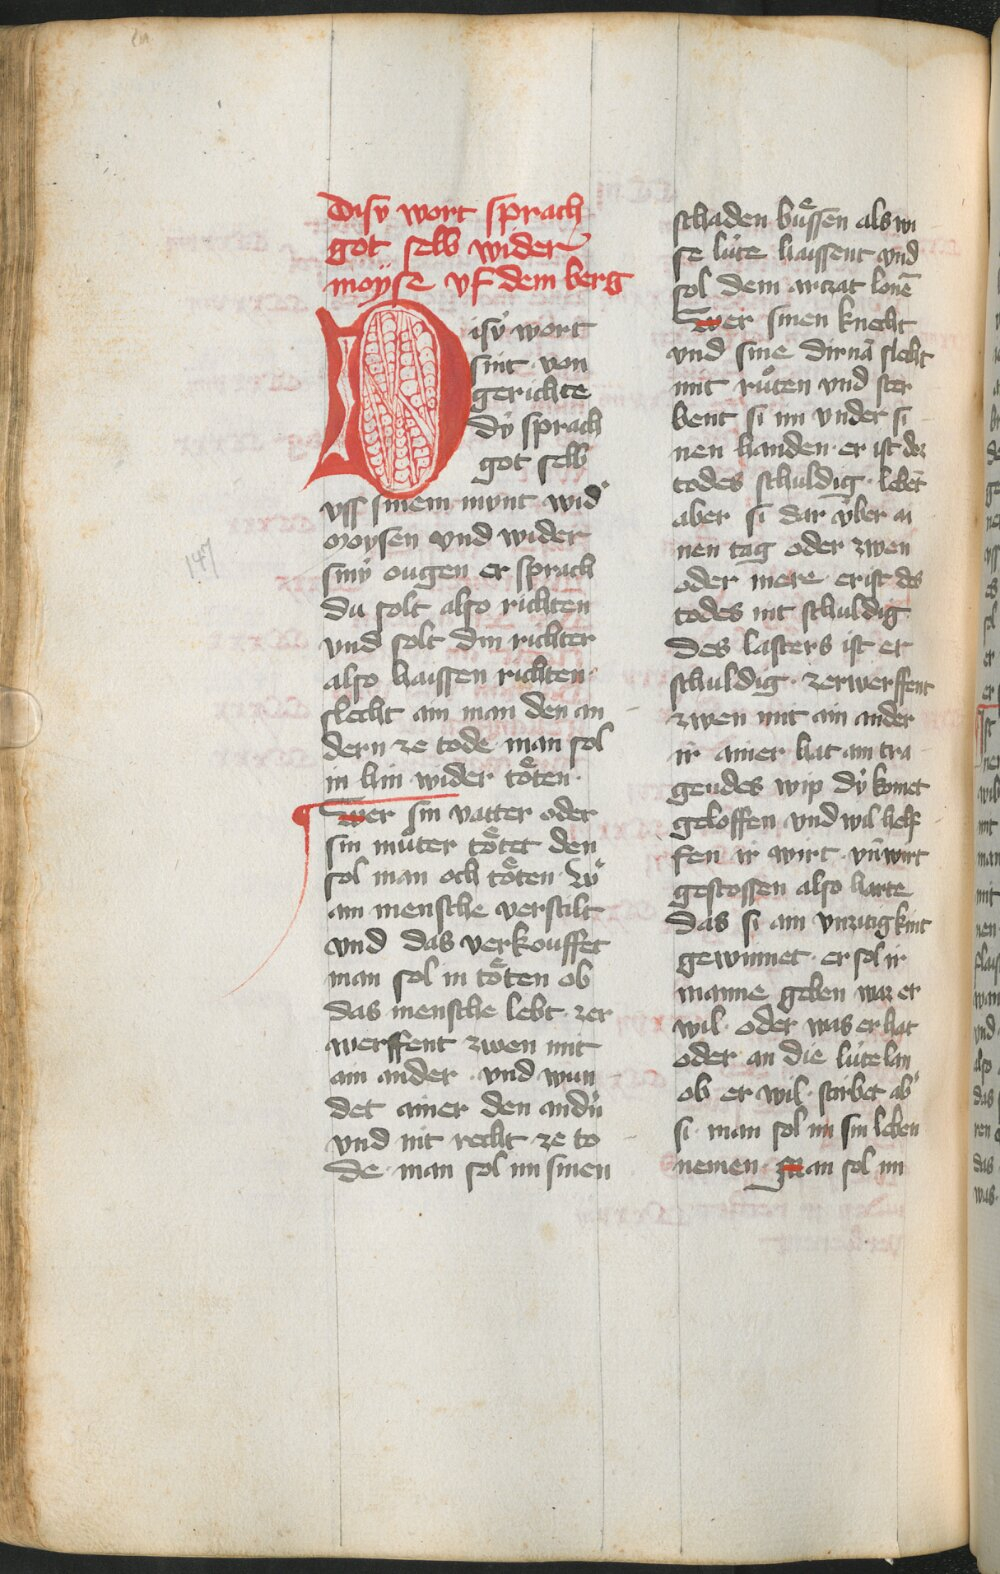 Disv wort sprach
got selb wider
moÿse vf dem berg
Disv́ wort
sint von
gerichte
dv́ sprach
got selb
vss sinem munt wid'
moysen vnd wider
sinv́ ougen er sprach
du solt also richten
vnd solt din richter
also haissen richten·
slecht ain man den an
dern ze tode man sol
in hin wider toͤten·
Wer sin vatter oder
sin muͦter toͤtet den
sol man och toͤten
ain mensche verstilt
vnd das verkouffet
man sol in toͤten ob
das mensche lebt zer
werffent zwen mit
ain ander · vnd wun
det ainer den andn̄
vnd nit recht ze to
de · man sol im sinen
schaden buͤssen als wi
se lúte haissent vnd
sol dem arczat lonē
Wer sinen knecht
vnd sine dirnā slecht
mit ruͦten vnd ster
bent si im vnder si
nen handen· er ist des
todes schuldig· lebēt
aber si dar v́ber ai
nen tag oder zwen
oder mere er ist des
todes nit schuldig
des lasters ist er
schuldig· zerwerffent
zwen mit ain ander
ir ainer hat ain tra
gendes wip dv́ komet
geloffen vnd wil helf
fen ir wirt vn̄ wirt
gestossen also harte
das si ain vnzitig kint
gewinnet· er sol ir
manne geben waz er
wil· oder was er hat
oder an die lúte lan
ob er wil· stirbet ab'
si· man sol im sin leben
nemen· Man sol im
147